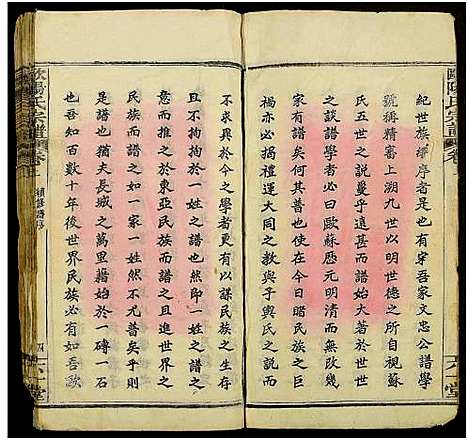 歐陽氏宗譜 卷
六一堂
紀世族繹序者是也有穿吾家文忠公譜學
號稱精審上溯九世以明世德之所自視蘇
氏五世之説曼乎遠甚而譜始大若於世世
譜者近矣何其甚也家在今日睹民族之競
禍亦必揭禮運大同之教與予輿氏之説而
不求異於今之學者更有以謀民族之生存
且不拘拘於一姓之譜也然即一姓之譜之
意而推之於東亞民族而譜之且進世界之
民族而譜之如一家一姓然不尤善矣乎則
是譜也猶夫長城之萬里藉始於一磚一石
也吾知百數十年後世界民族必有如吾歐
歐陽氏宗譜
四
六一堂